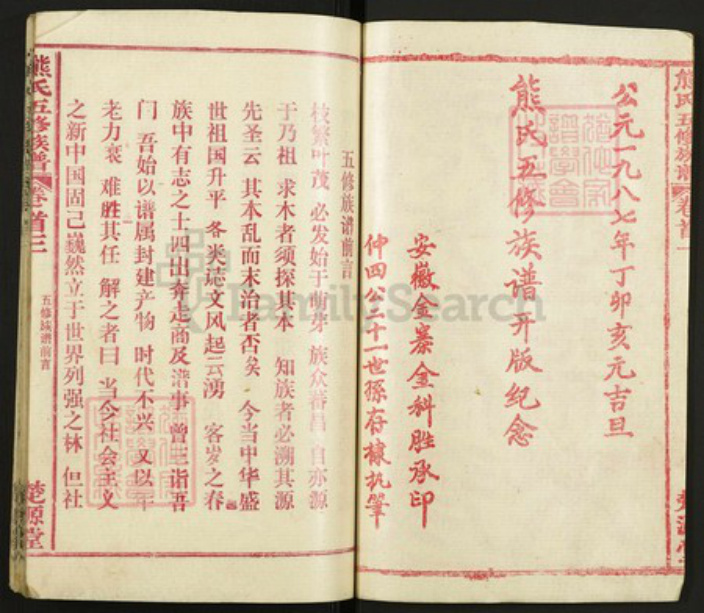 熊氏五修族谱 卷首一
公元一九八七年丁卯亥元吉旦
熊氏五修族谱开版纪念
安徽金寨金科胜承印
仲四公三十一世孫存棣执筆
五修族谱前言
枝繁叶茂 必发始于萌芽 族众蕃昌 自亦源
于乃祖 求木者须探其本 知族者必溯其源
先圣云 其本乱而末治者否矣 今当中华盛
世祖国升平 各类誌文风起云湧 客岁之春
族中有志之士四出奔走商及谱事 曾三诣吾
门 吾始以谱属封建产物 时代不兴 又以年
老力衰 难胜其任 解之者曰 当今社会主义
之新中国固己巍然立于世界列强之林 但社
熊氏五修族譜 卷首三
五修族谱前言
楚源堂
FamilySearch